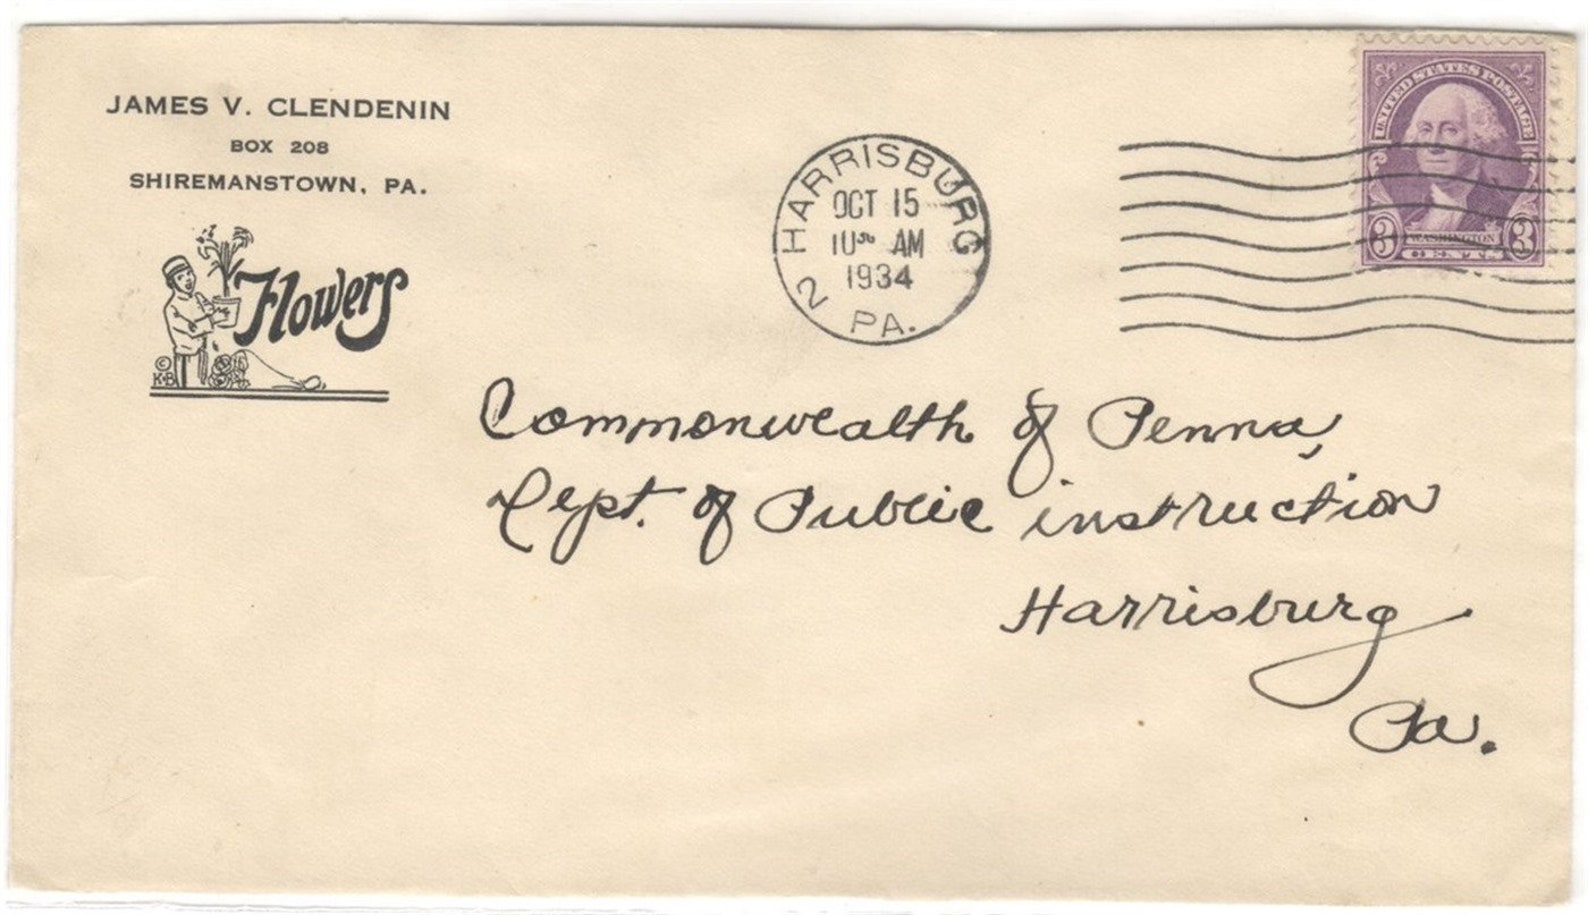 JAMES V. CLENDENIN
BOX 208
SHIREMANSTOWN, PA.
Flowers
© K-B
HARRISBURG
OCT 15
10 AM
1934
2
PA.
UNITED STATES POSTAGE
3 WASHINGTON 3
CENTS
Commonwealth of Penna,
Dept. of Public instruction
Harrisburg
Pa.